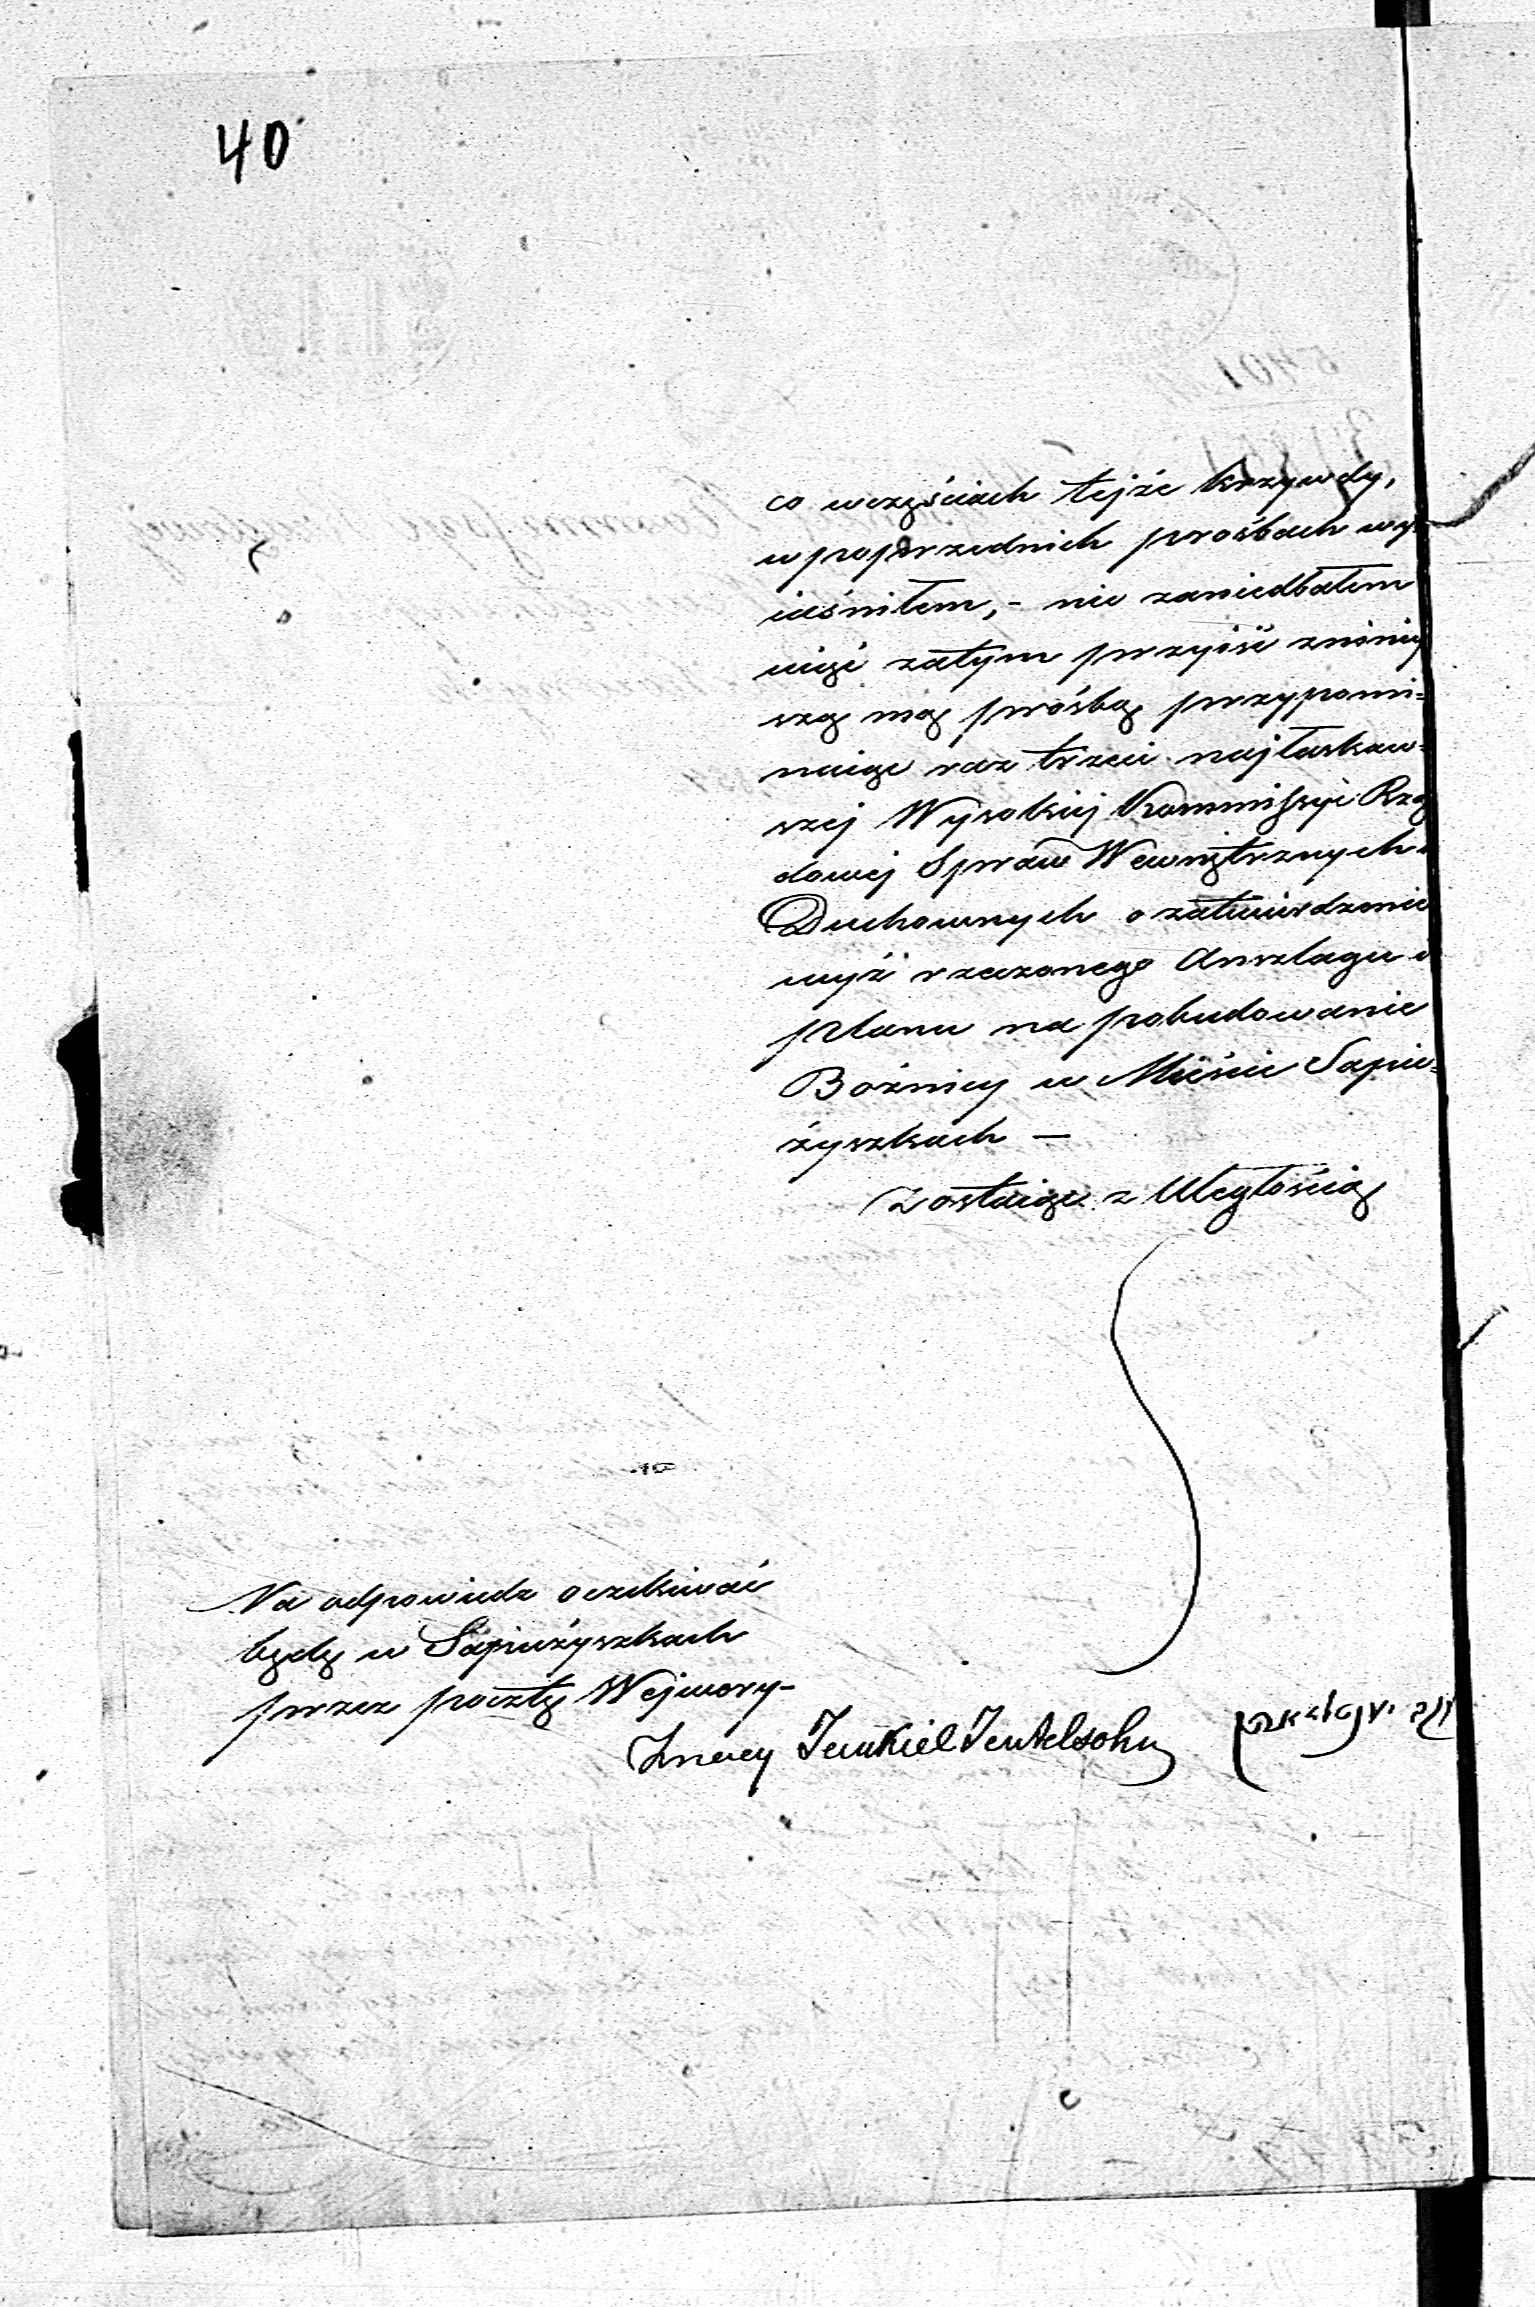 40
co wczęściach tejże krzywdy,
w poprzednich prośbach wy-
iaśniłem, - nie zaniedbałem
więc zatym przyiść zniniey
szą mą prośbą przypomi=
naiąc raz trzeci najłaskaw=
szej Wysokiej Kommissyi Rzą
dowej Spraw Wewnętrznych i
Duchownych o zatwierdzenie
wyż rzeczonego Anszlagu i
planu na pobudowanie
Bóżnicy w Mieście Sapie=
żyszkach —
Zostaiąc z Uległością
Na odpowiedz oczekiwać
będę w Sapieżyszkach
przez pocztę Wejwery-
Jankiel